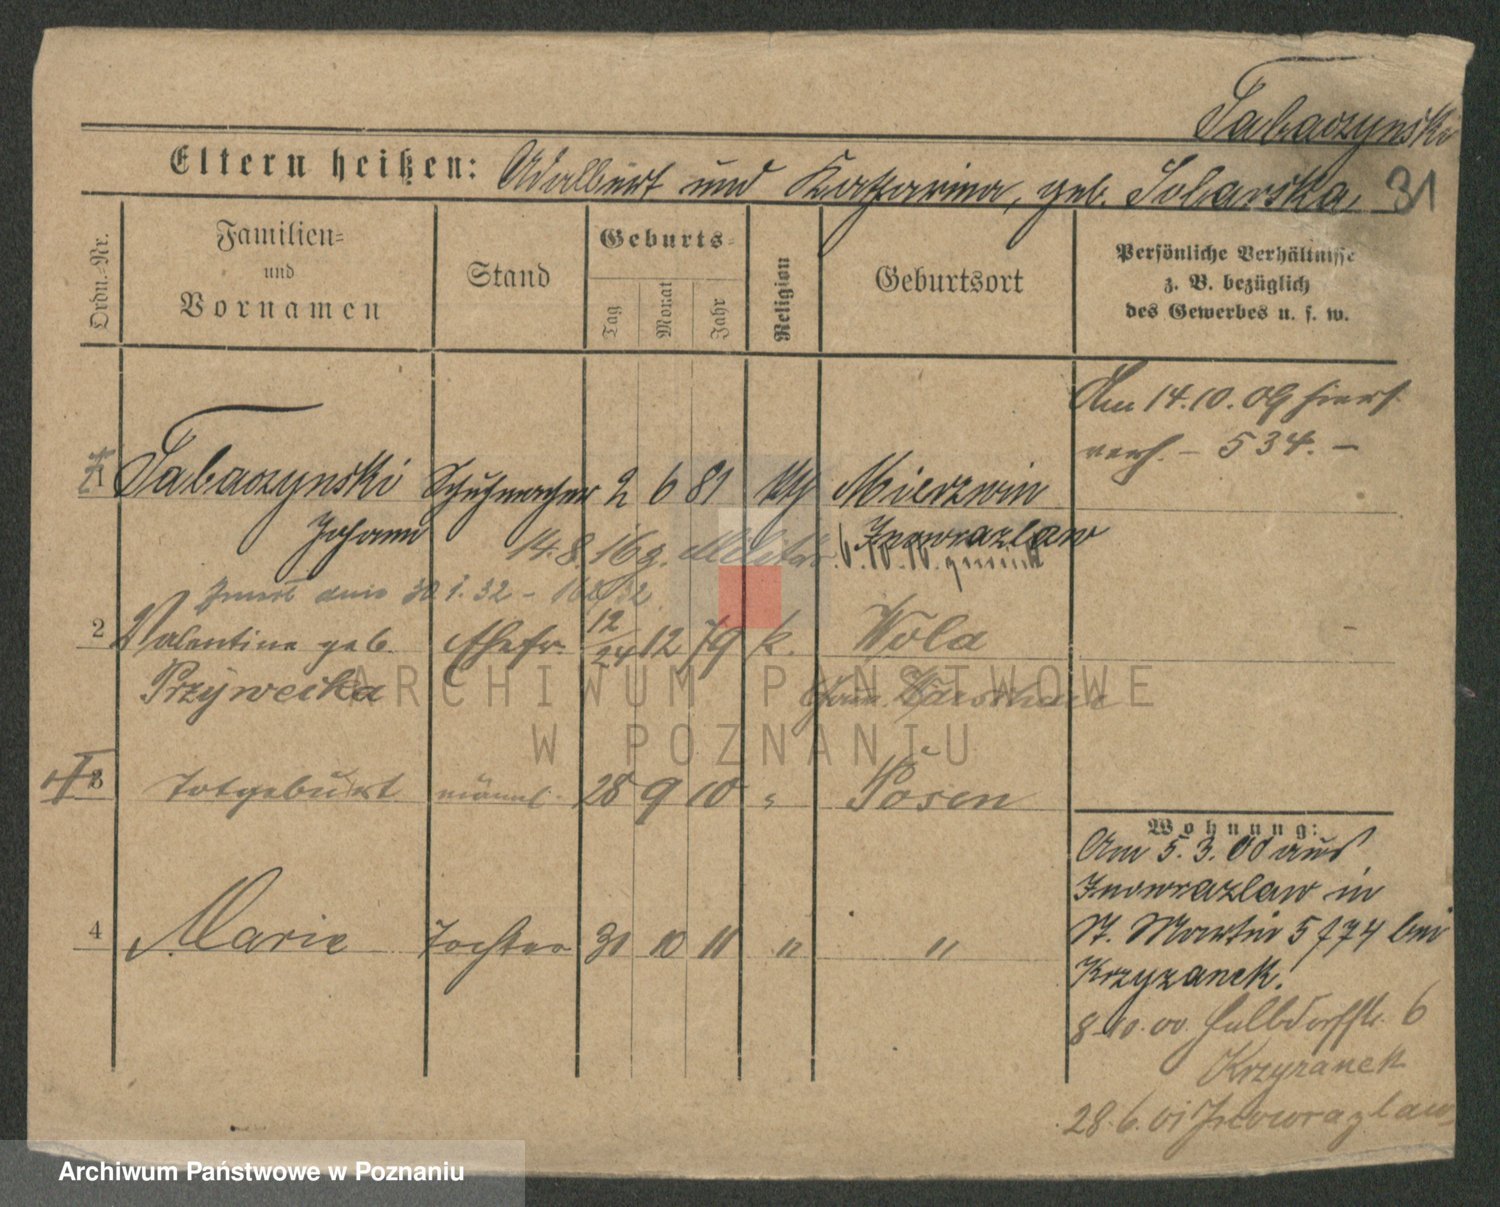 Tabaczynski
Eltern heißen: Adalbert und Katharina, geb. Sobarska, 31
Ordn.-Nr.
Familien-
und
Vornamen
Stand
Geburts-
Tag
Monat
Jahr
Religion
Geburtsort
Persönliche Verhältnisse
z. B. bezüglich
des Gewerbes u. s. w.
Am 14.10.09 hiers.
verh. - 534. -
1 Tabaczynski Schuhmacher 2 6 81 kth Mierzwin
Johann Inowrazlaw
14.8.16 z. Militär.
30 1. 32 -
2 Valentine geb. Ehefr. 12/24 12 79 k. Wola
Przywecka
3 Totgeburt männl. 28 9 10 " Posen
4 Marie Tochter 30 10 11 " "
Wohnung:
Am 5.3.00 aus
Inowrazlaw in
St. Martin 5 f 74 bei
Krzyzanek.
8.10.00. Halbdorfstr. 6
Krzyzanek
28.6.01 Inowrazlaw
ARCHIWUM PAŃSTWOWE
W POZNANIU
Archiwum Państwowe w Poznaniu